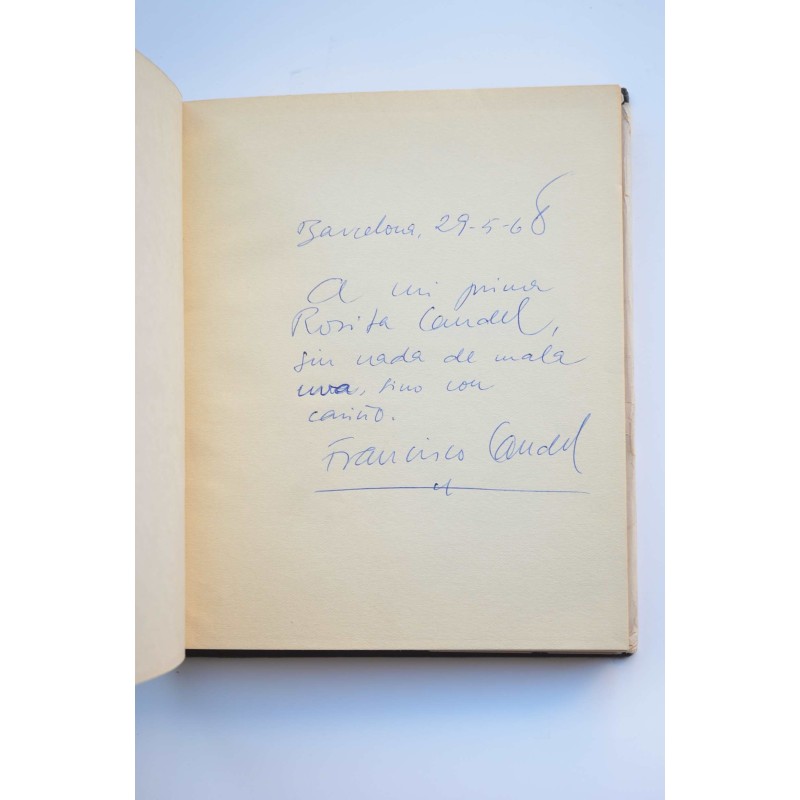 Barcelona, 29-5-68
A mi prima
Rosita Candel,
sin nada de mala
uva, sino con
cariño.
Francisco Candel